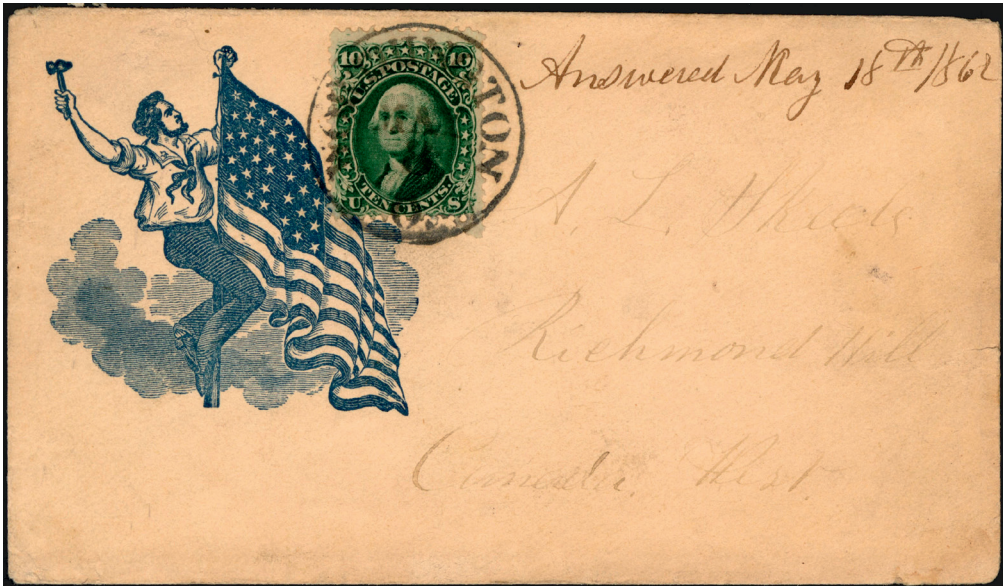 10 10
U.S. POSTAGE
TEN CENTS.
U S
TON
Answered May 18th/1862
A. L.
Richmond Hill
Canada West.